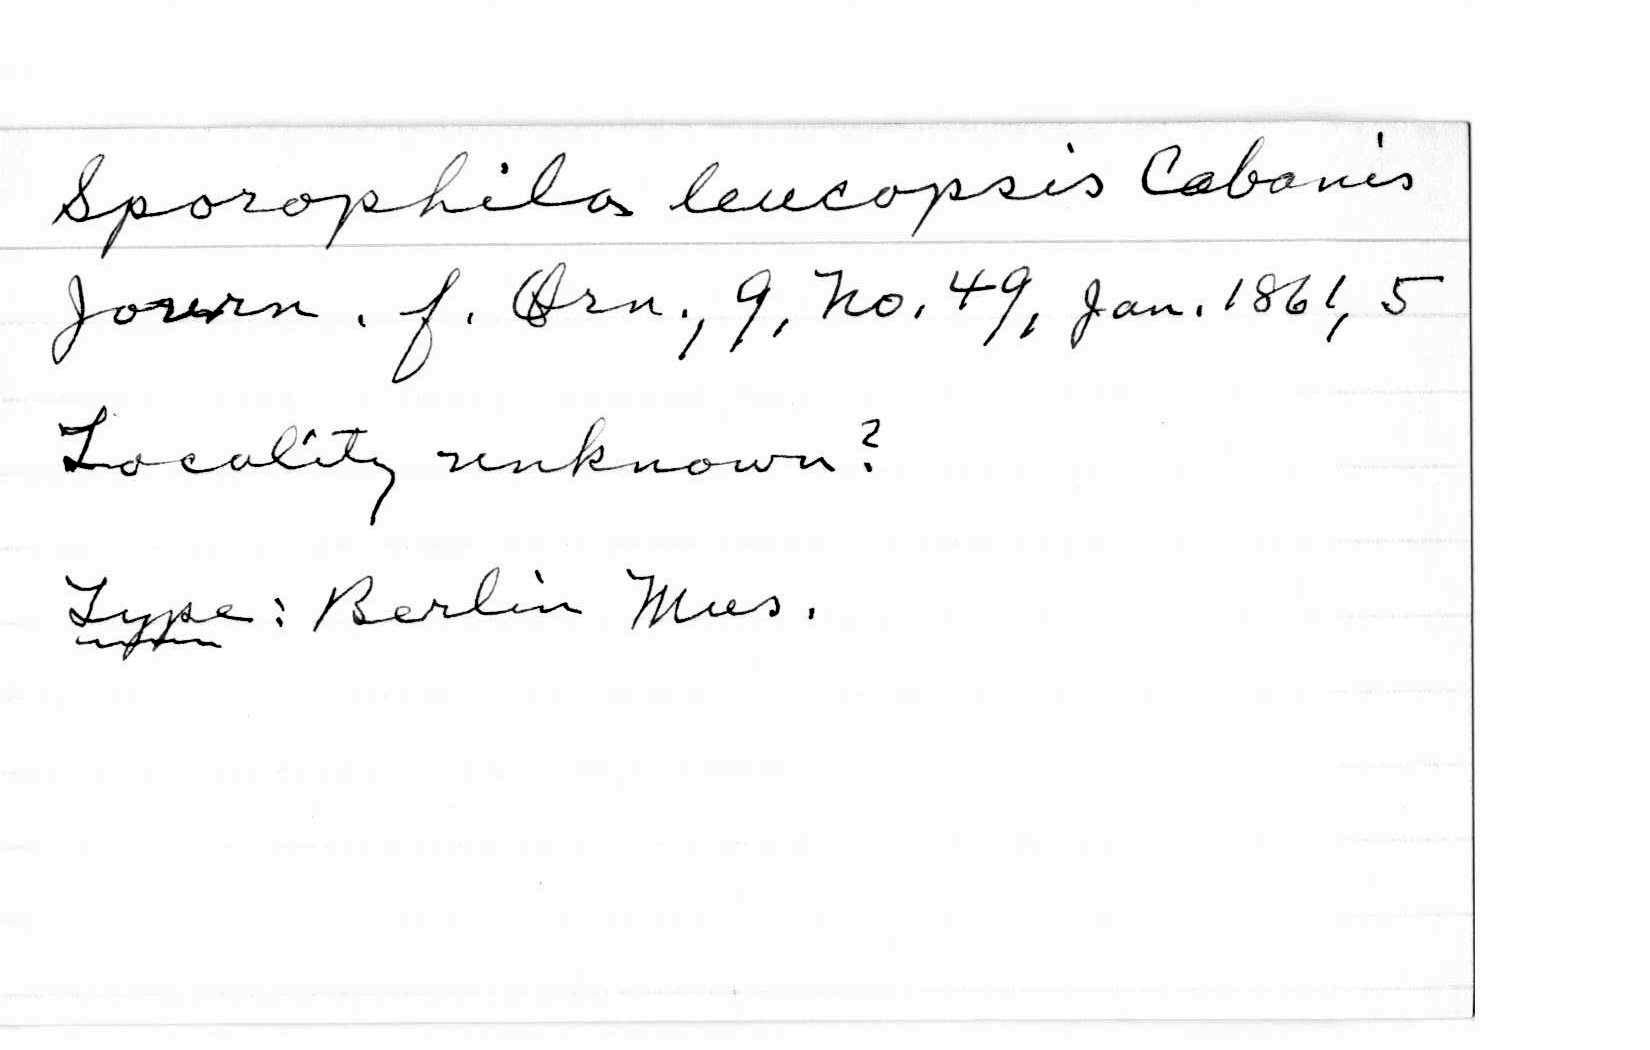 Sporophila leucopsis Cabanis
Journ. f. Orn., 9, No. 49, Jan. 1861, 5
Locality unknown?
Type: Berlin Mus.